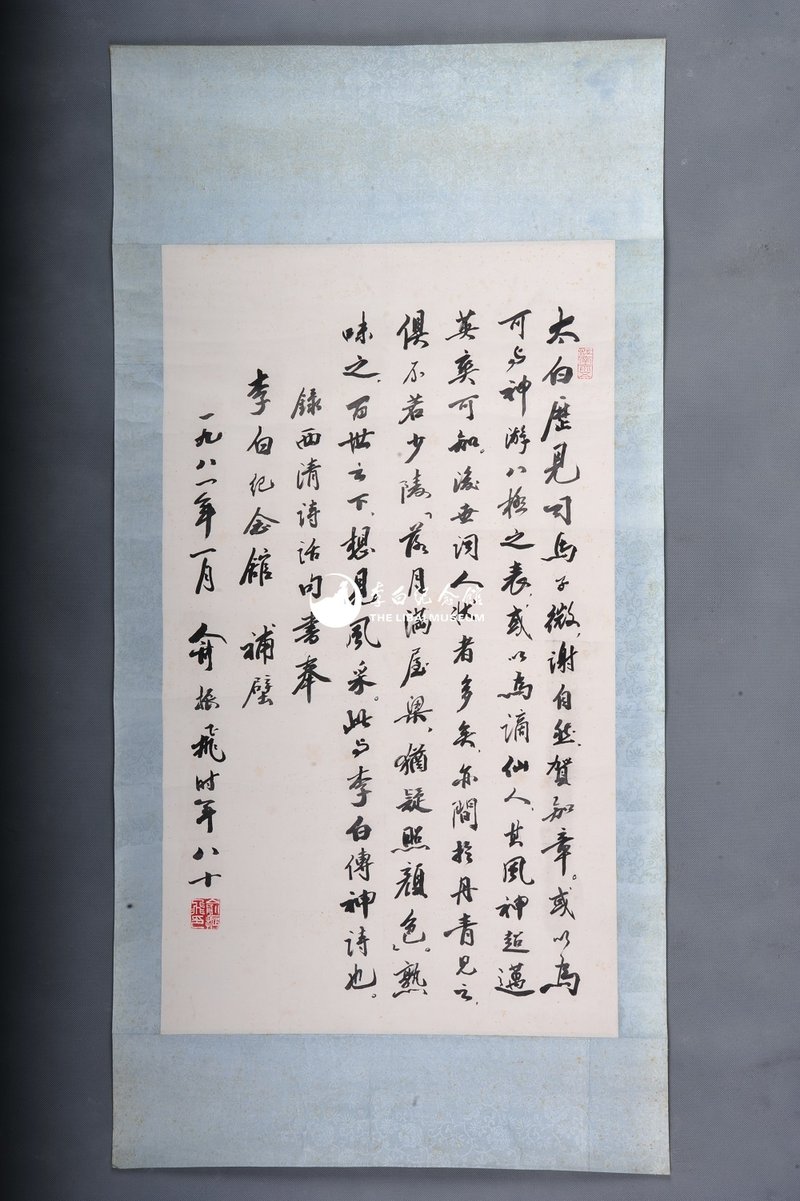 太白歷見司马子微、谢自然、贺知章。或以為
可与神游八極之表，或以為谪仙人，其風神超邁
英爽可知。後世词人状者多矣，亦間於丹青见之，
俱不若少陵「落月满屋梁，猶疑照顔色。」熟
味之，百世之下，想見風采。此与李白傳神詩也。
録西清詩话句書奉
李白纪念館 補壁
一九八一年一月 俞振飛时年八十
李白纪念馆
THE LIBAI MUSEUM